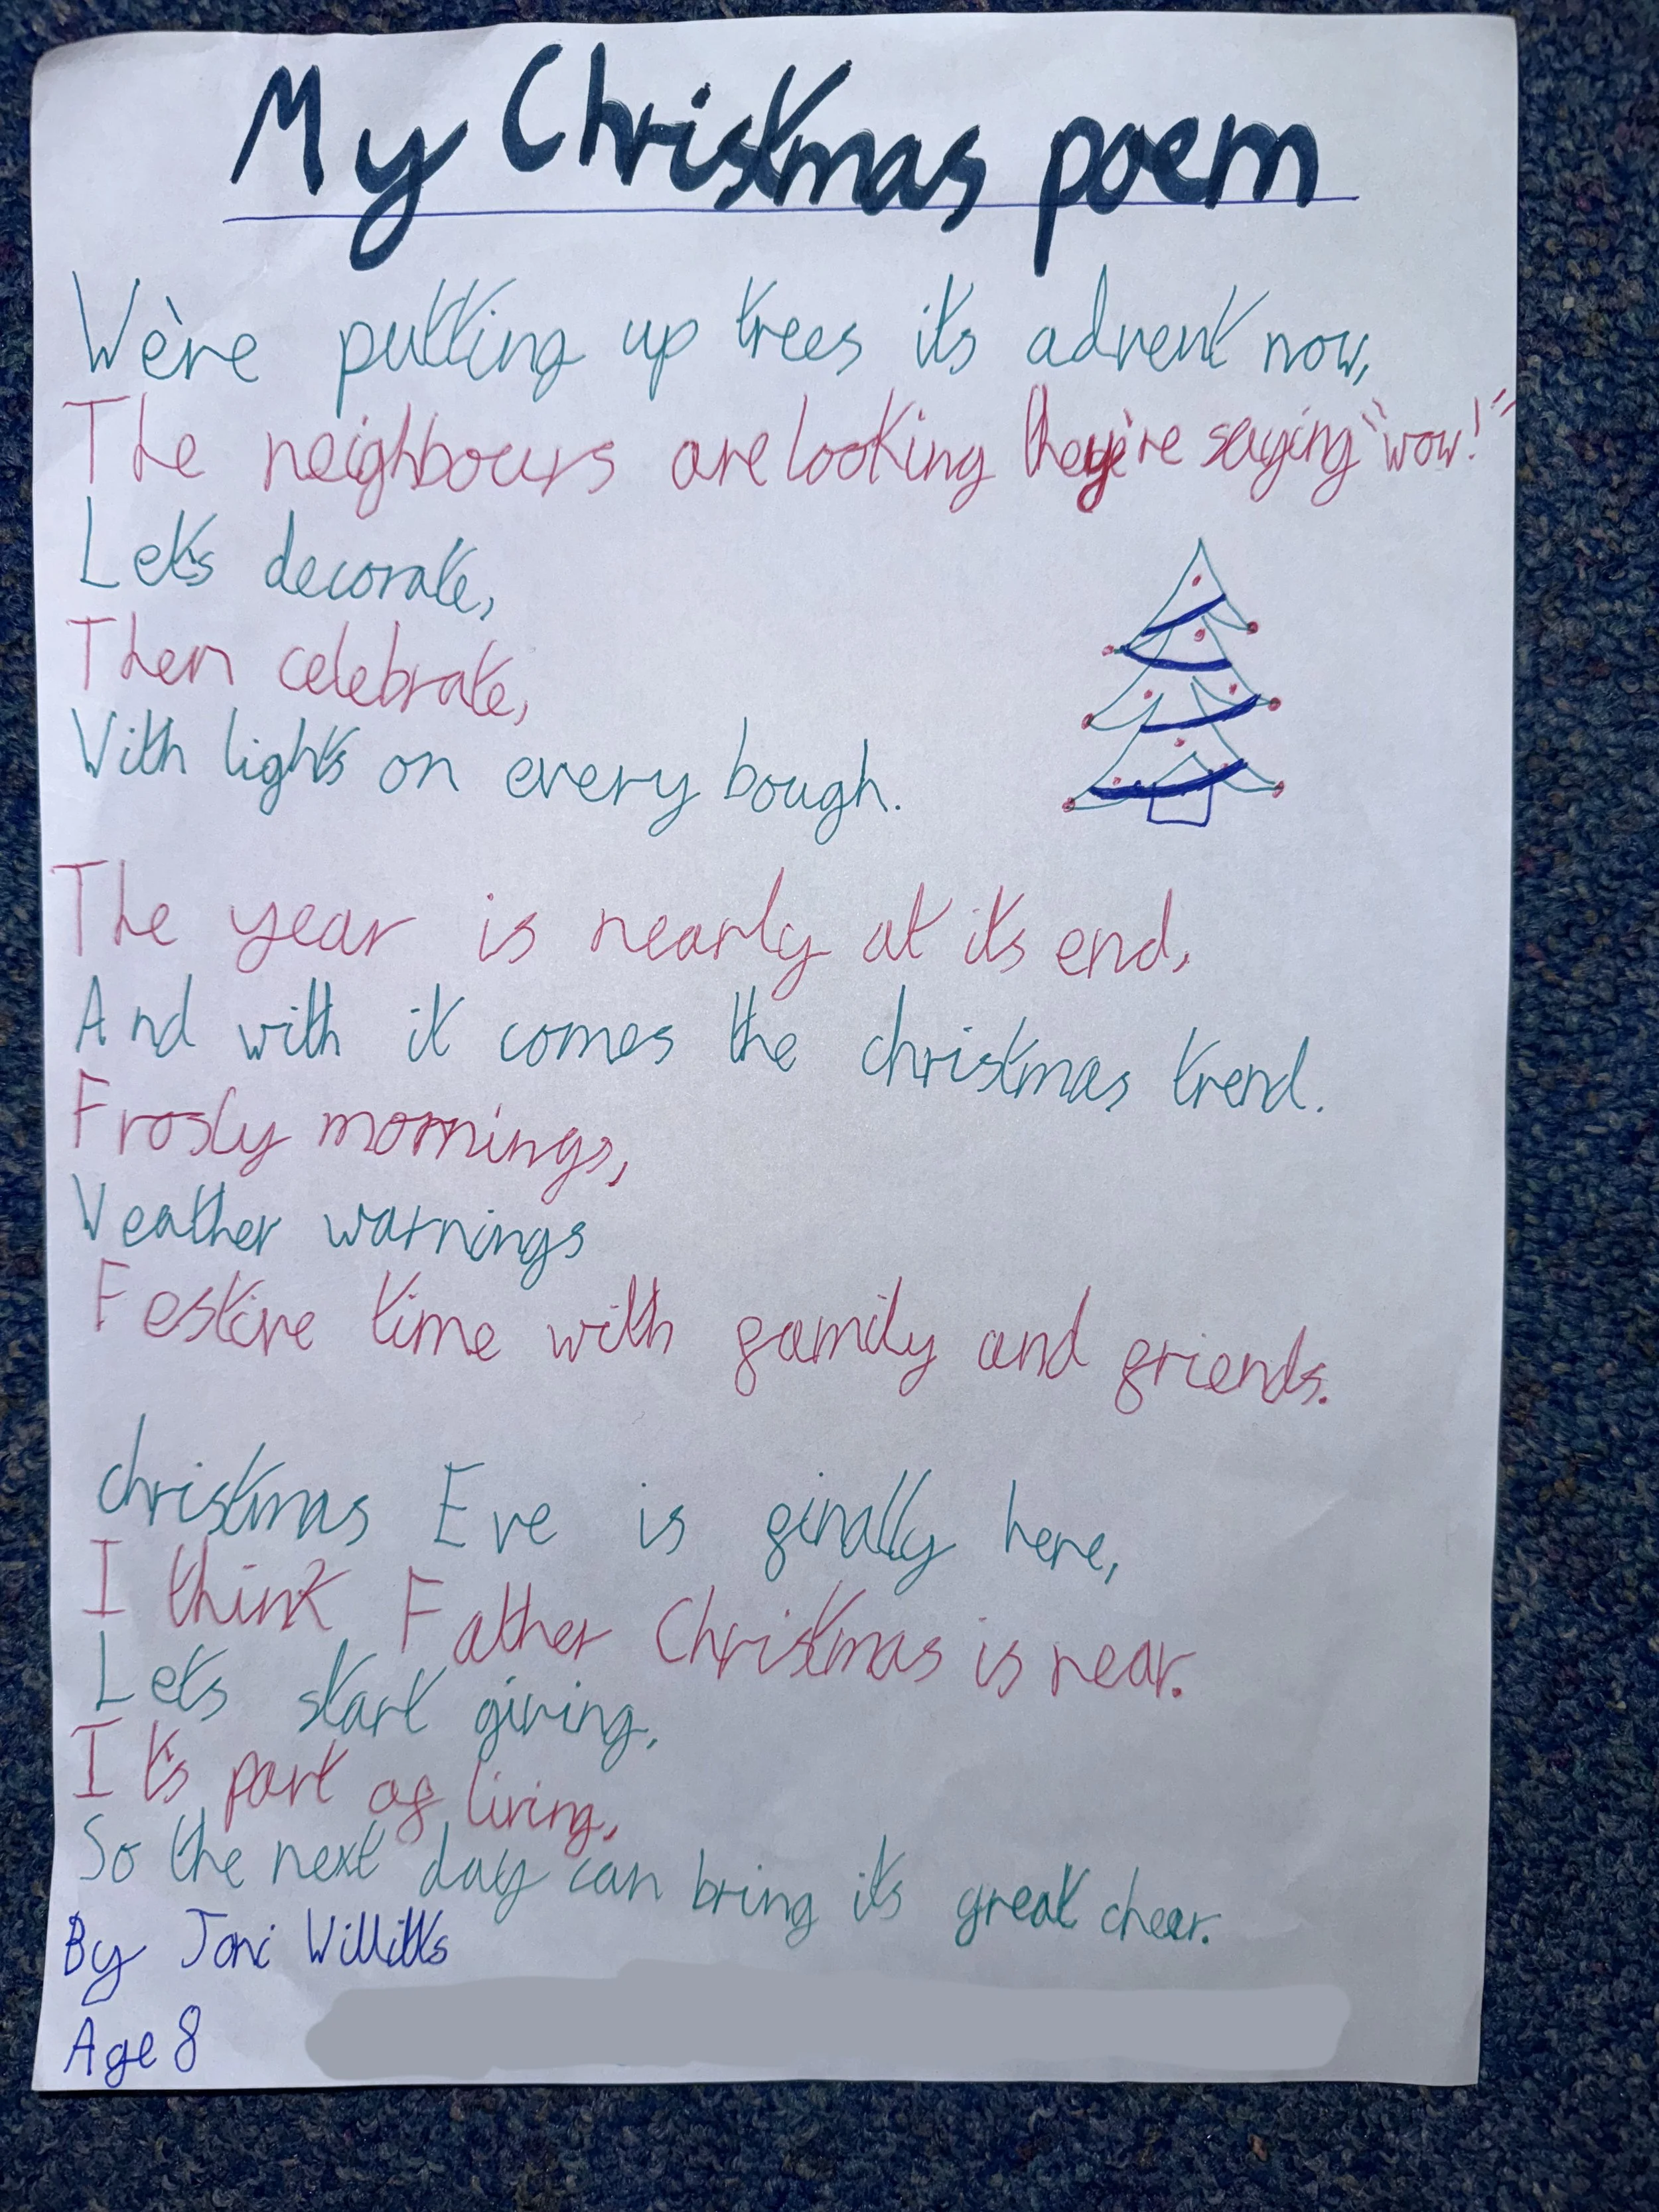 My Christmas poem
We're putting up trees its advent now,
The neighbours are looking they're saying "wow!"
Let's decorate,
Then celebrate,
With lights on every bough.
The year is nearly at its end,
And with it comes the christmas trend.
Frosty mornings,
Weather warnings
Festive time with family and friends.
christmas Eve is finally here,
I think Father Christmas is near.
Let's start giving,
It's part of living,
So the next day can bring its great cheer.
By Joni Willitts
Age 8